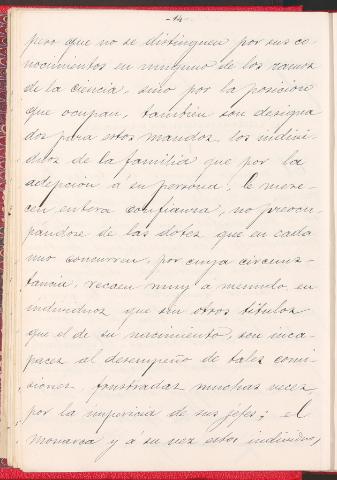 -14-
pero que no se distinguen por sus co-
nocimientos en ninguno de los ramos
de la ciencia, sino por la posicion
que ocupan, tambien son designa
dos para estos mandos, los indivi-
duos de la familia que por la
adepcion á su persona, le mere-
cen entera confianza, no preocu-
pandose de las dotes que en cada
uno concurren, por cuya circuns-
tancia, recaen muy á menudo, en
individuos que sin otros titulos
que el de su nacimiento, son inca-
paces al desempeño de tales comi-
siones, frustradas muchas veces,
por la impericia de sus jefes; el
monarca y á su vez estos individuos,